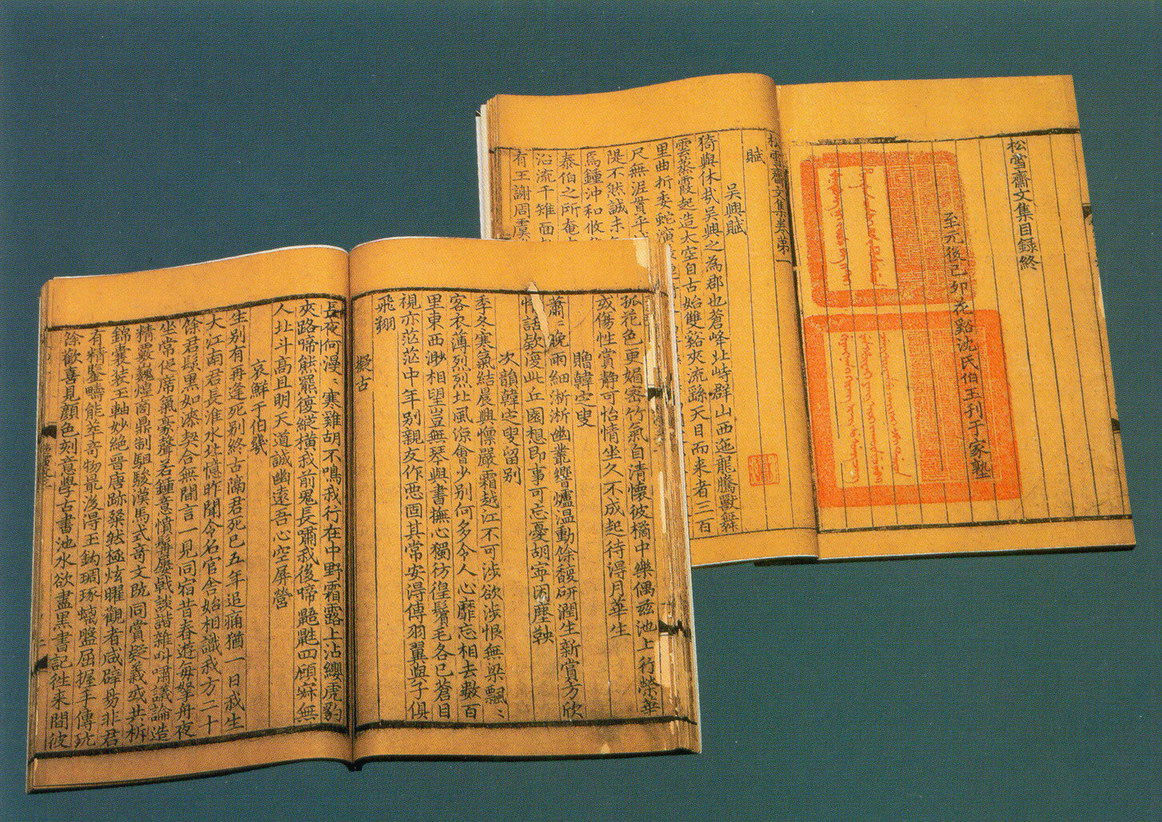 松雪齋文集目録終
至元後己卯花谿沈氏伯玉刊于家塾
松雪齋文集卷第一
賦
吳興賦
猗與休哉吳興之為郡也蒼峰北峙群山西迤龍騰獸舞
雲蒸霞起造太空自古始雙谿夾流繇天目而来者三百
里曲折委蛇演
尺無涯貫乎
隄不然誠未
焉鍾沖和攸
泰伯之所奄
沿流千雉面
有王謝周虞
孤花色更媚密竹氣自清懷彼橘中樂偶兹池上行榮華
或傷性賞静可怡情坐久不成起待得月華生
贈韓之叟
蕭〻晚雨細淅淅幽叢響爐温動餘馥研潤生新賞方欣
情話欵復此丘園想即事可忘憂胡寧困塵鞅
次韻韓之叟留别
季冬寒氣結晨興懍嚴霜越江不可涉欲涉恨無梁飄〻
客衣薄烈烈北風涼會少别何多令人心靡忘相去數百
里東西渺相望豈無琴與書撫心獨彷徨鬢毛各已蒼目
視亦茫茫中年别親友作惡固其常安得傅羽翼與子俱
飛翔
擬古
長夜何漫〻寒雞胡不鳴我行在中野霜露上沾纓虎豹
夾路啼熊羆復縱橫我前鬼長嘯我後啼鼯鼪四顧寂無
人北斗高且明天道誠幽遠吾心空屏營
哀鮮于伯幾
生别有再逢死别終古隔君死已五年追痛猶一日我生
大江南君長淮水北憶昨聞令名官舍始相識我方二十
餘君髯黒如漆契合無間言一見同宿昔春遊每拏舟夜
坐常促席氣豪聲若鍾意憤髯屢戟談諧雜叫嘯議論造
精覈巍煌商鼎制駔駿漢馬式奇文既同賞疑義或共析
錦囊裝玉軸妙絶晉唐跡粲然極炫曜觀者咸辟易非君
有精鑒疇能萃奇物最後得玉鈎琱琢螭盤屈握手傳玩
餘歡喜見顔色刻意學古書池水欲盡黒書記往来間彼